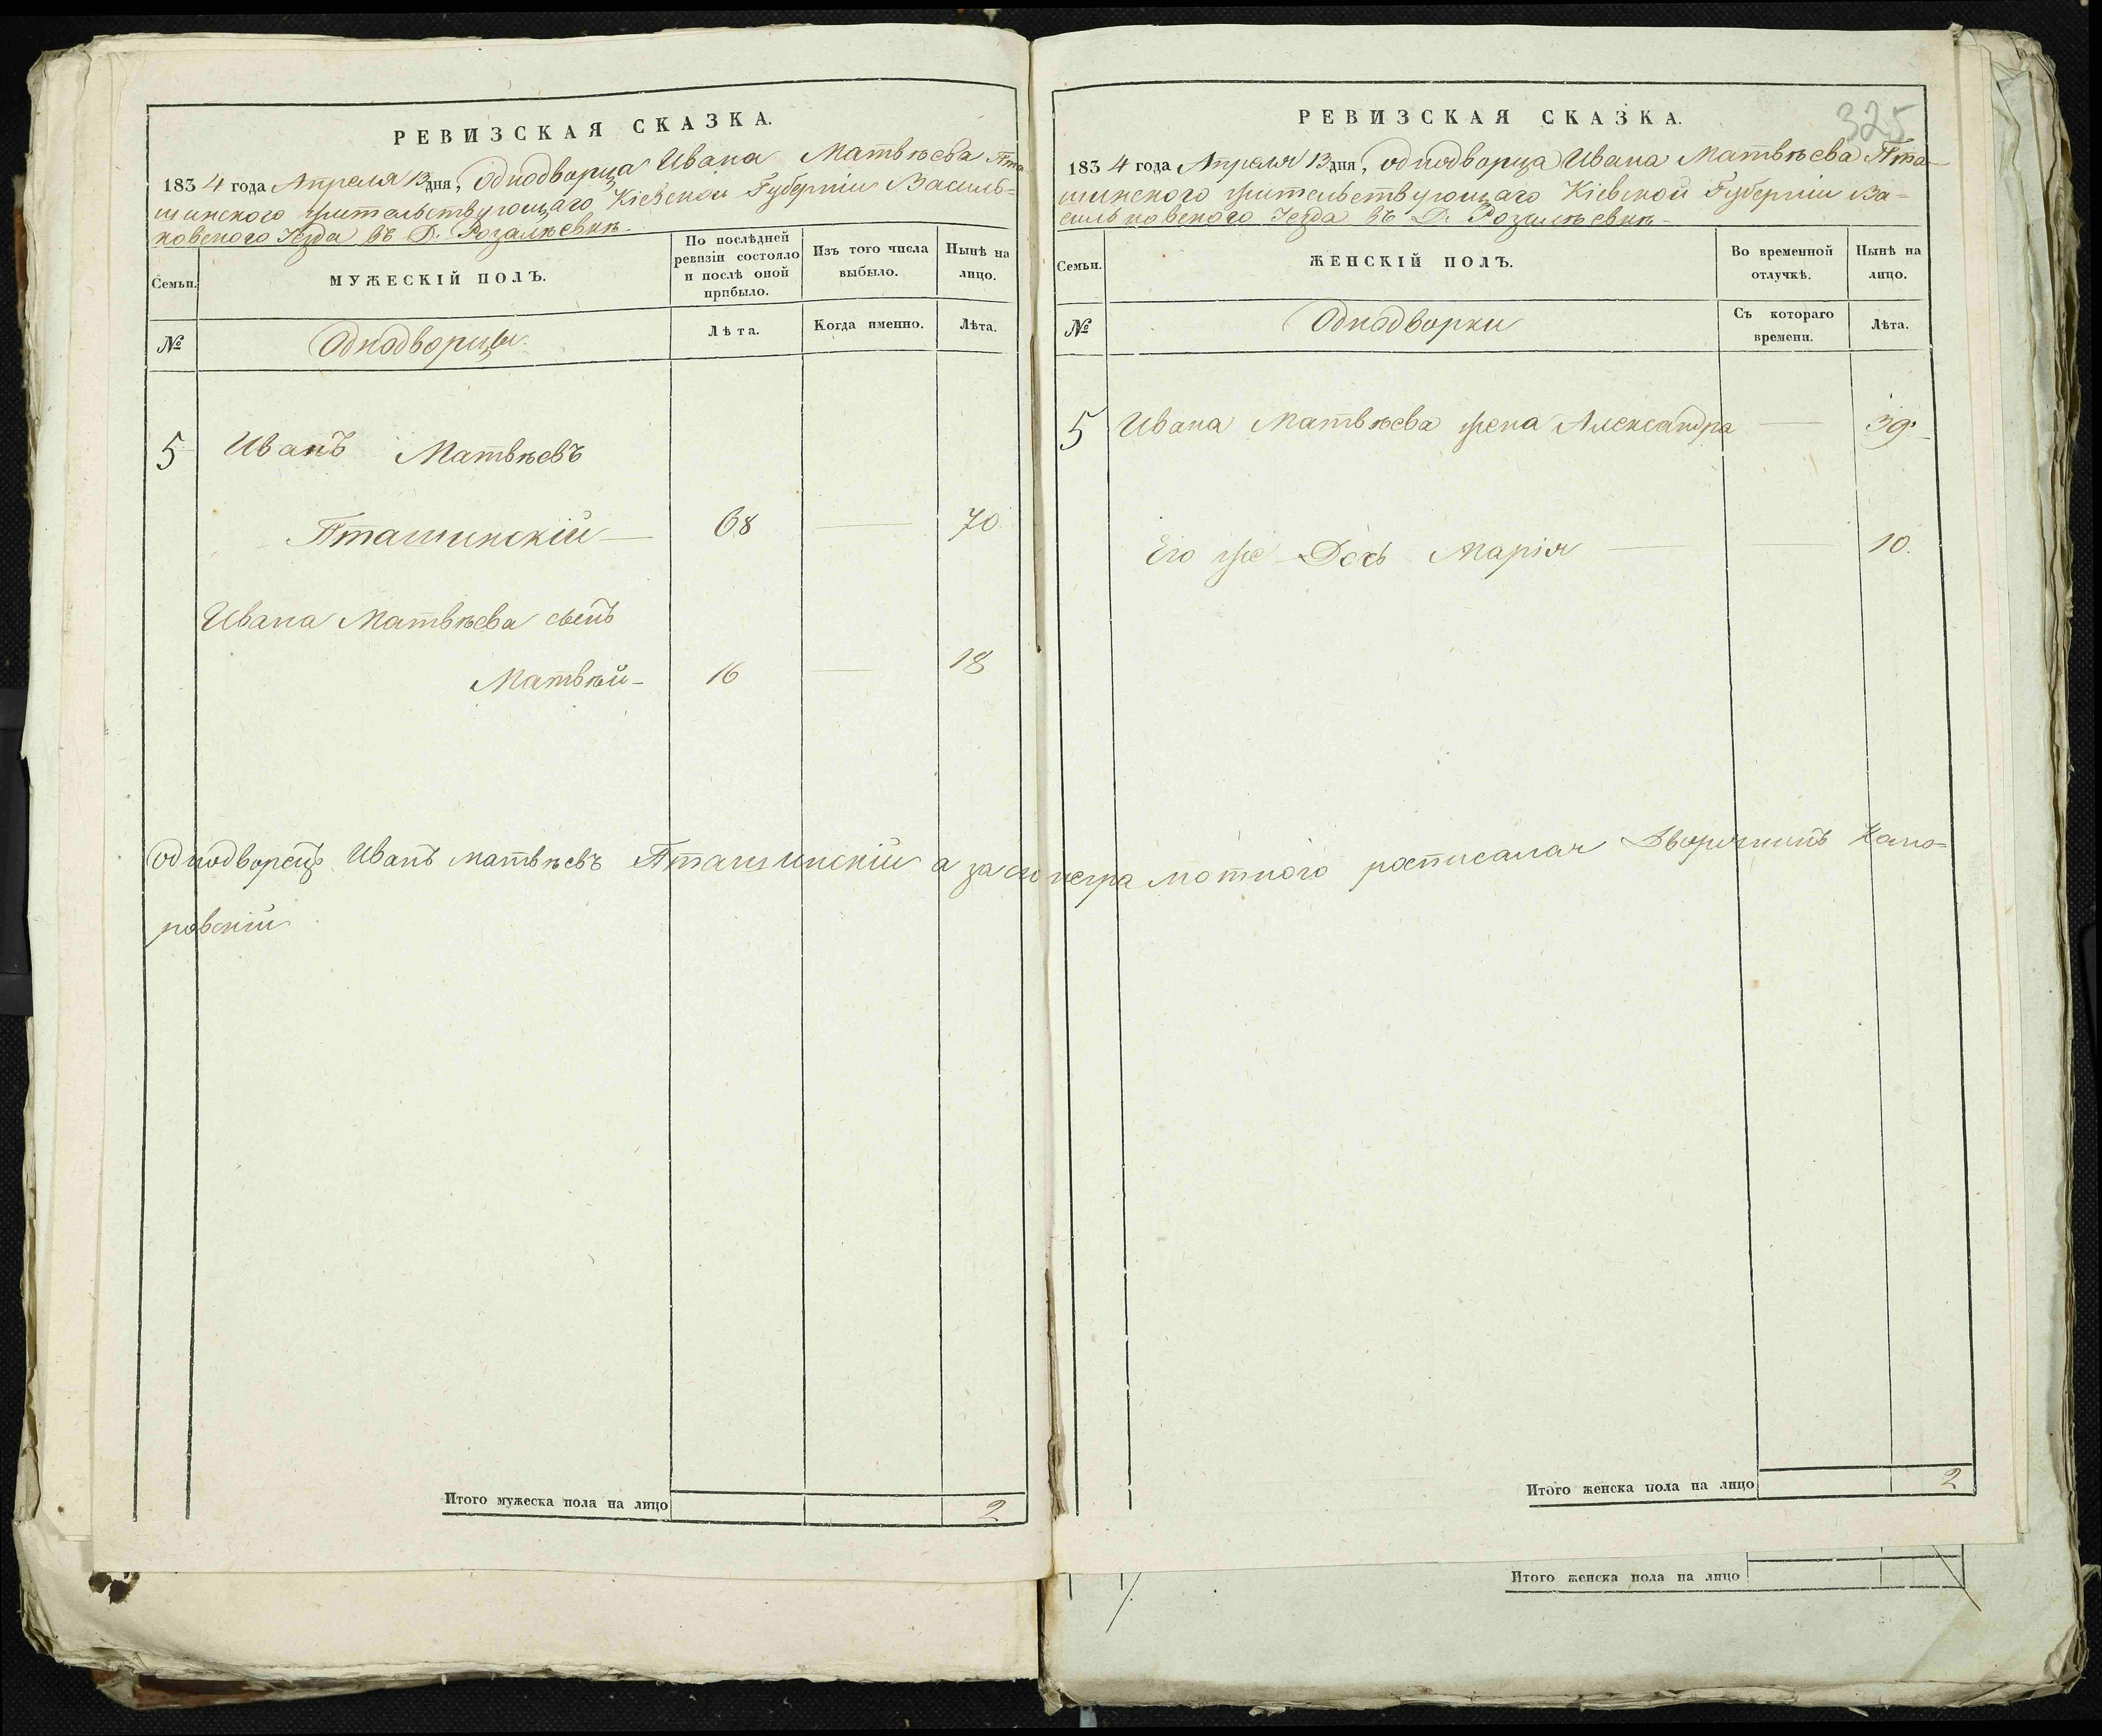 РЕВИЗСКАЯ СКАЗКА.
1834 года Апреля 13 дня, Однодворца Ивана Матвѣева Пта-
шинского жительствующаго Кіевской Губерніи Василь=
ковского Уезда въ Д.
Семьи.
МУЖЕСКІЙ ПОЛЪ.
По послѣдней
ревизіи состояло
и послѣ оной
прибыло.
Изъ того числа
выбыло.
Нынѣ на
лицо.
№
Однодворцы
Лѣта.
Когда именно.
Лѣта.
5 Иванъ Матвѣевъ
Пташинскій — 68 — 70
Ивана Матвѣева сынъ
Матвѣй - 16 — 18
Однодворецъ Иванъ Матвѣевъ Пташинскій а за его неграмотного росписался Дворянинъ
Итого мужеска пола на лицо 2
325
РЕВИЗСКАЯ СКАЗКА.
1834 года Апреля 13 дня, однодворца Ивана Матвѣева Пта-
шинского жительствующаго Кіевской Губерніи Ва=
сильковского Уезда въ Д.
Семьи.
ЖЕНСКІЙ ПОЛЪ.
Во временной
отлучкѣ.
Нынѣ на
лицо.
№
Однодворки
Съ котораго
времени.
Лѣта.
5 Ивана Матвѣева жена Александра — 39.
Его же Дочь Марія — — 10.
Итого женска пола на лицо 2
Итого женска пола на лицо